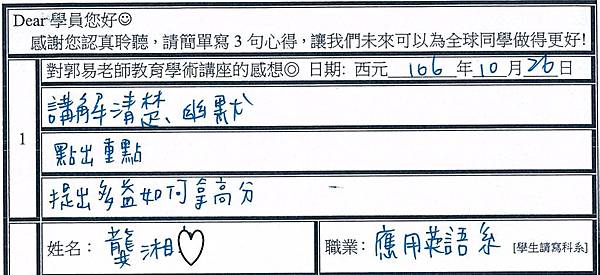 Dear 學員您好☺
感謝您認真聆聽，請簡單寫 3 句心得，讓我們未來可以為全球同學做得更好!
對郭易老師教育學術講座的感想◎ 日期: 西元 106 年 10 月 26 日
1
講解清楚、幽默
點出重點
提出多益如何拿高分
姓名： 龔湘♡
職業： 應用英語系 [學生請寫科系]